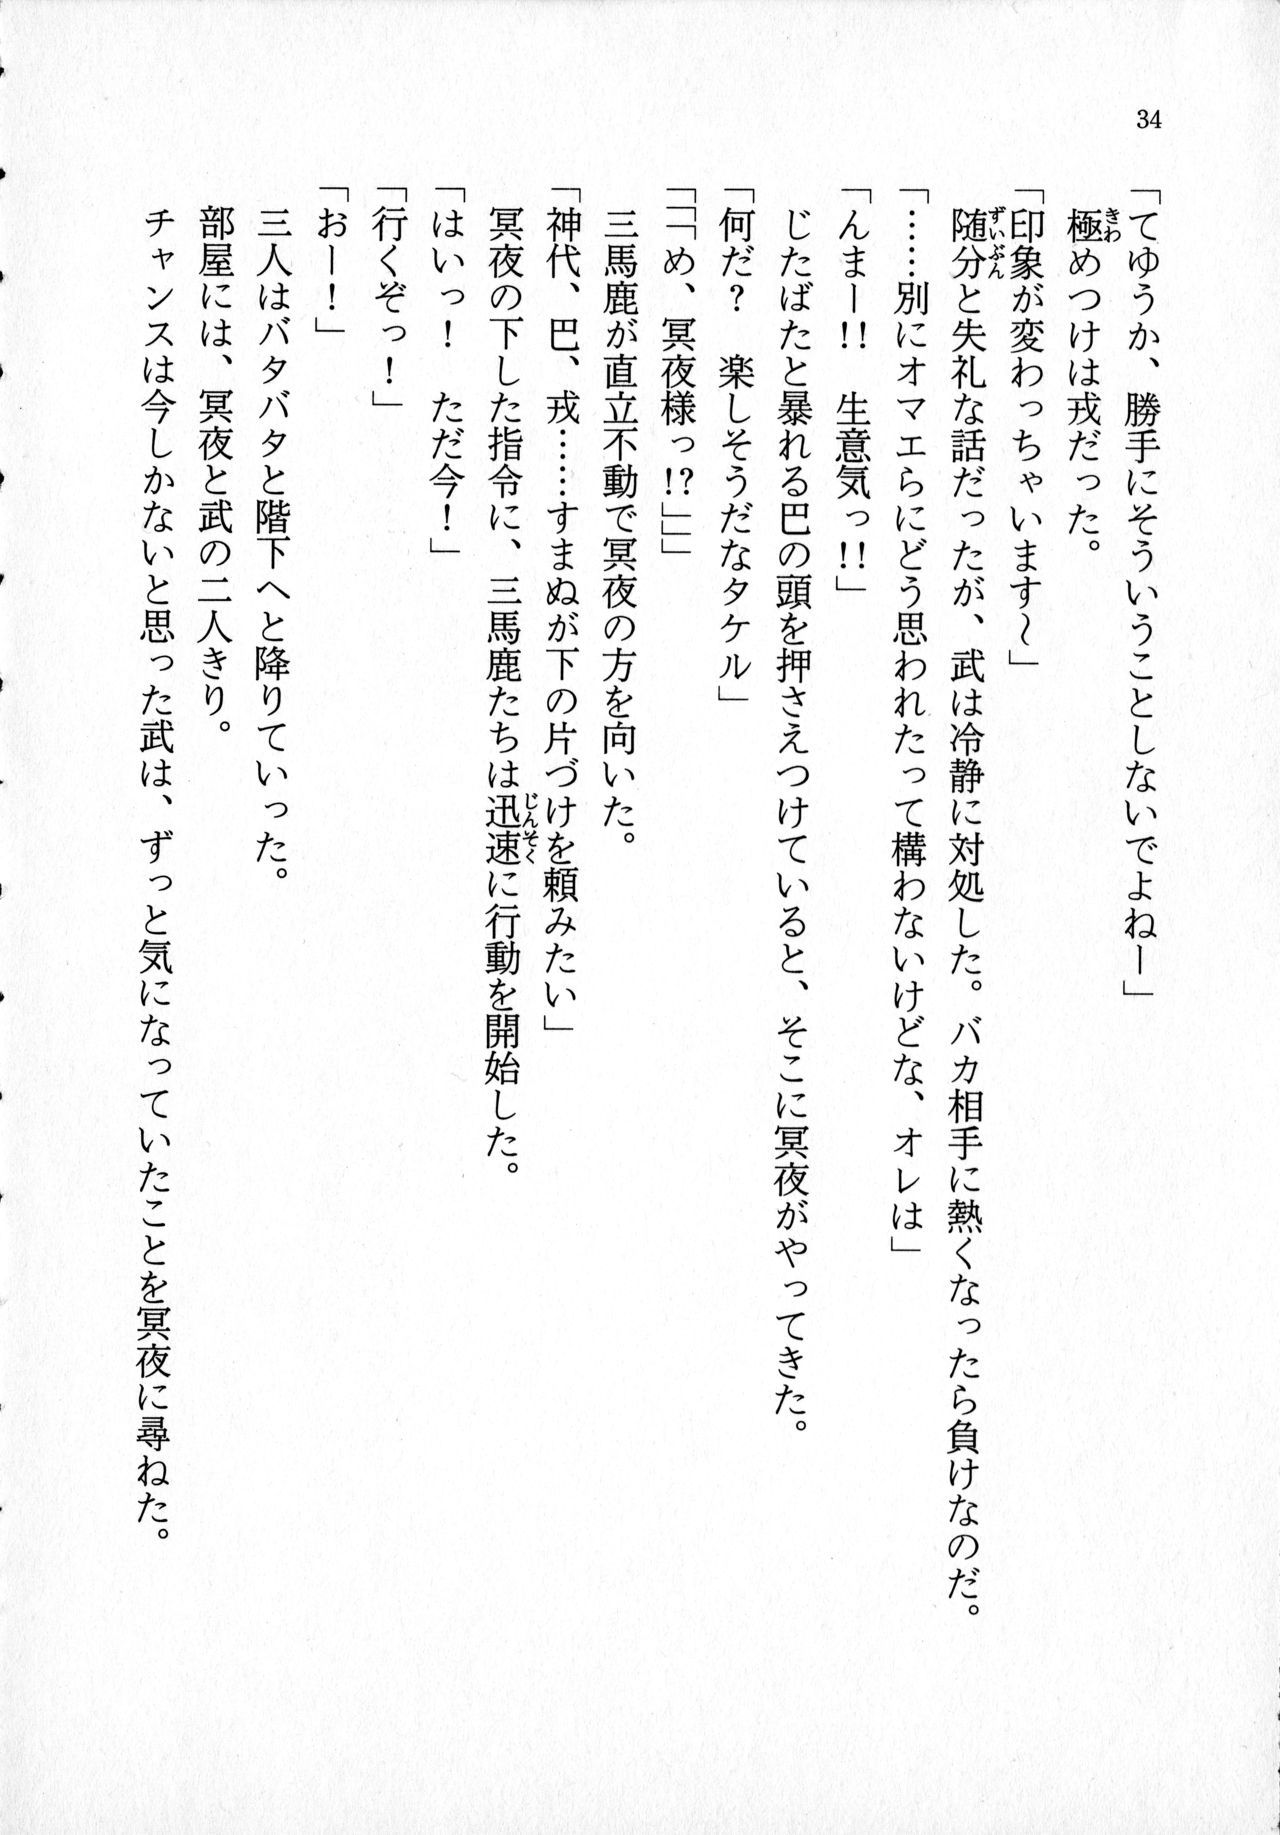 34
「てゆうか、勝手にそういうことしないでよねー」
極めつけは戎だった。
「印象が変わっちゃいます～」
随分と失礼な話だったが、武は冷静に対処した。バカ相手に熱くなったら負けなのだ。
「……別にオマエらにどう思われたって構わないけどな、オレは」
「んまー!!　生意気っ!!」
じたばたと暴れる巴の頭を押さえつけていると、そこに冥夜がやってきた。
「何だ？　楽しそうだなタケル」
「「「め、冥夜様っ!?」」」
三馬鹿が直立不動で冥夜の方を向いた。
「神代、巴、戎……すまぬが下の片づけを頼みたい」
冥夜の下した指令に、三馬鹿たちは迅速に行動を開始した。
「はいっ！　ただ今！」
「行くぞっ！」
「おー！」
三人はバタバタと階下へと降りていった。
部屋には、冥夜と武の二人きり。
チャンスは今しかないと思った武は、ずっと気になっていたことを冥夜に尋ねた。